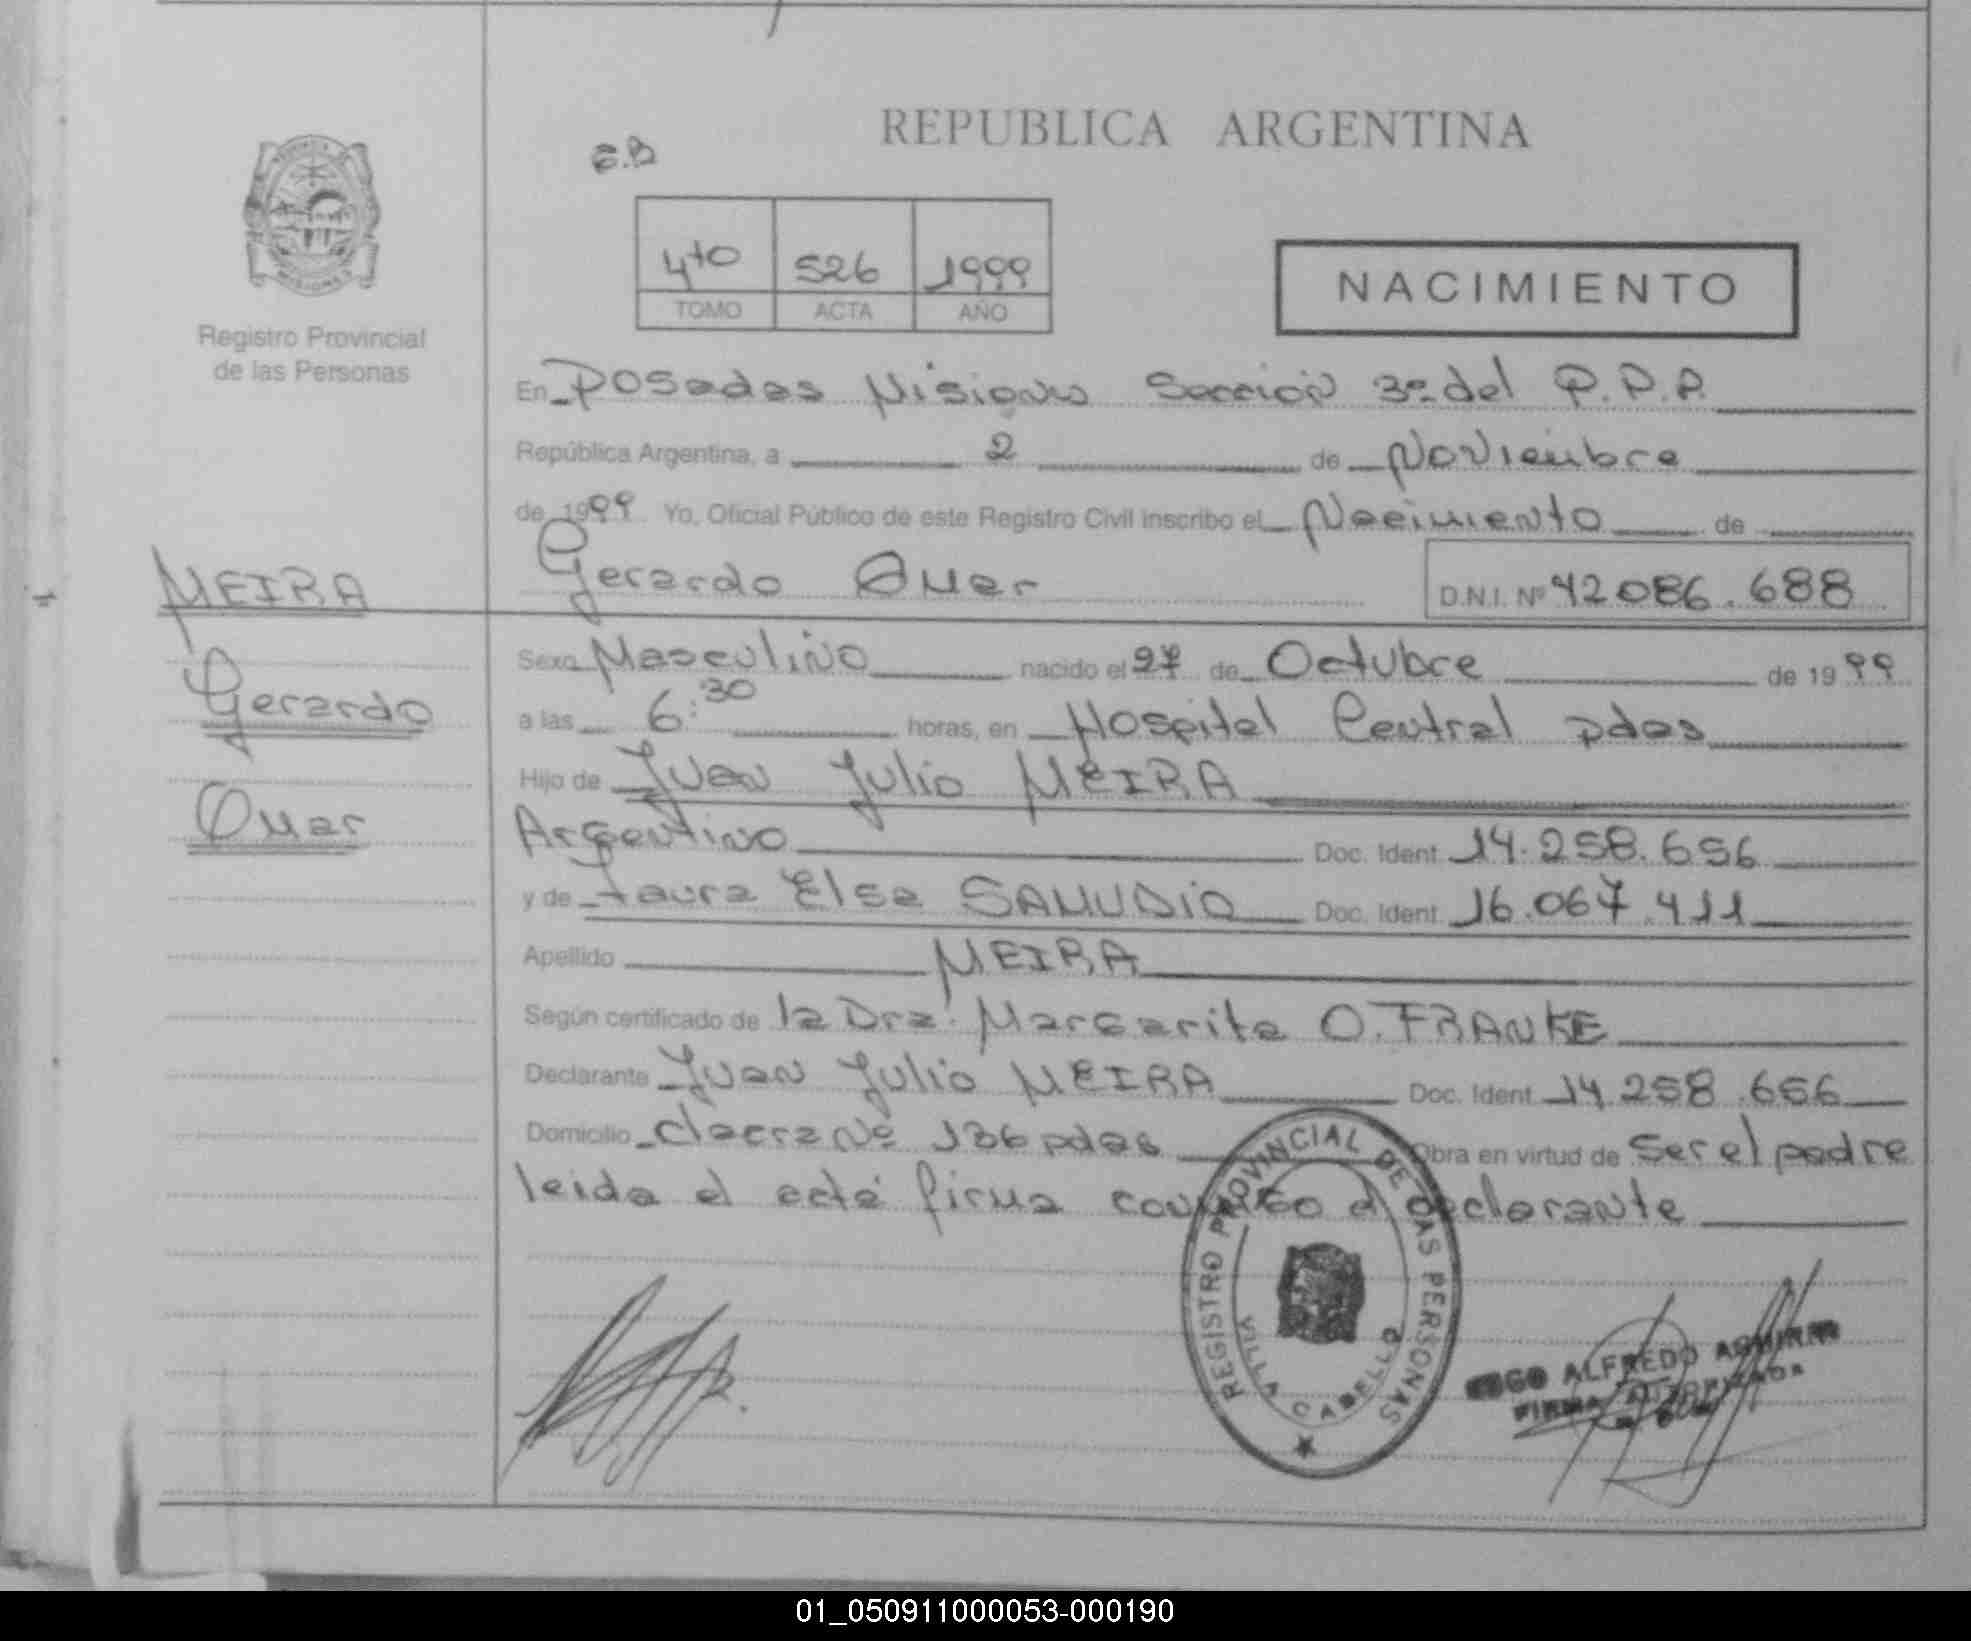 REPUBLICA ARGENTINA
E.B
4to 526 1999
TOMO ACTA AÑO
NACIMIENTO
Registro Provincial
de las Personas
En Posadas Misiones Sección 3ª del R.P.P.
República Argentina, a 2 de Noviembre
de 1999 Yo, Oficial Público de este Registro Civil inscribo el Nacimiento de
Gerardo Omar D.N.I. Nº 42086.688
MEIRA
Gerardo
Omar
Sexo Masculino nacido el 27 de Octubre de 1999
a las 6:30 horas, en Hospital Central pdas
Hijo de Juan Julio MEIRA
Argentino Doc. Ident 14.258.656
y de Laura Elsa SAMUDIO Doc. Ident 16.067.411
Apellido MEIRA
Según certificado de la Dra. Margarita O. FRANKE
Declarante Juan Julio MEIRA Doc. Ident 14.258.656
Domicilio chacra Nº 136 pdas Obra en virtud de ser el padre
leida el acta firma conmigo el declarante
REGISTRO PROVINCIAL DE LAS PERSONAS
VILLA CABELLO
ALFREDO
FIRMA AUTORIZADA
01_050911000053-000190